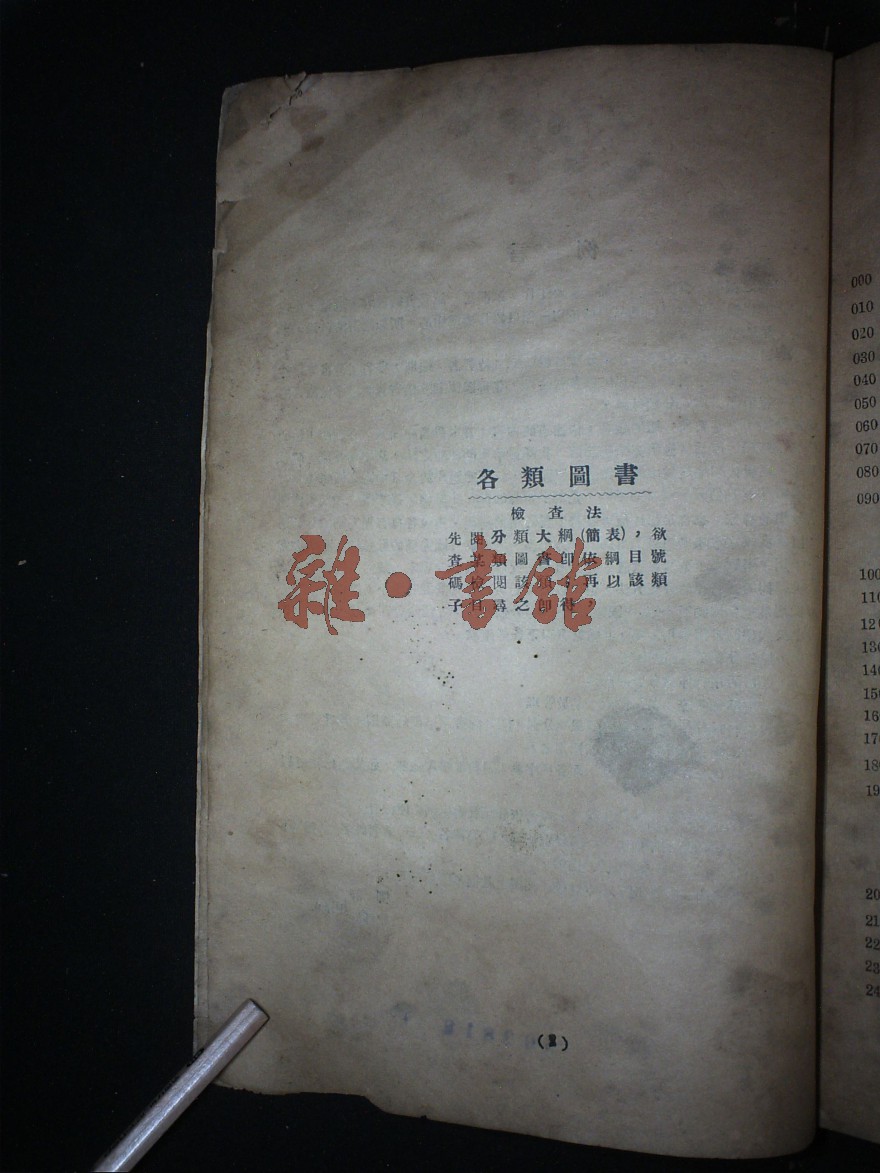 各類圖書
檢查法
先閱分類大綱(簡表)，欲
查某類圖書即依綱目號
碼檢閱該類，再以該類
子目尋之即得，
雜·書館
(2)
000
010
020
030
040
050
060
070
080
090
100
110
120
130
140
150
160
170
180
19
20
21
22
23
24